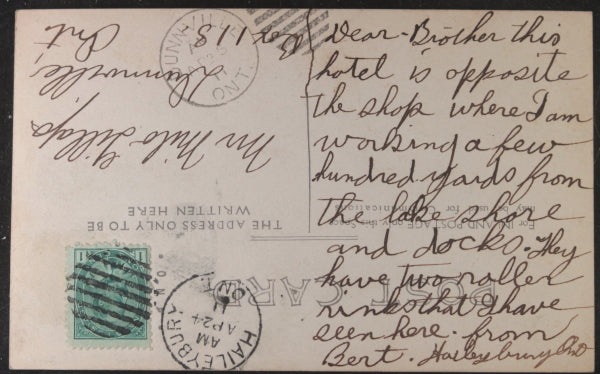 Dear-Brother this
hotel is opposite
the shop where I am
working a few
hundred yards from
the lake shore
and docks. They
have two roller
rinks that I have
seen here. from
Bert. Haileysbury Ont
POST CARD
For INLAND POSTAGE only this Space
may be used for Communications
THE ADDRESS ONLY TO BE
WRITTEN HERE
Mr Milo
Dunnville,
Ont
Box
HAILEYBURY
AM
AP 24
11
ONT
DUNNVILLE
ONT
1 1